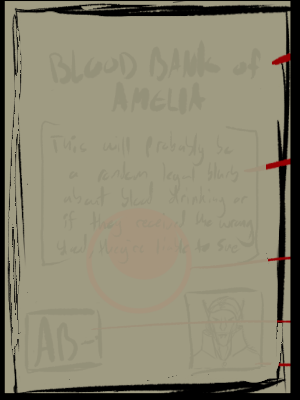 BLOOD BANK of
AMELIA
This will probably be
a random legal blurb
about blood drinking or
if they received the wrong
blood they're liable to sue
AB-